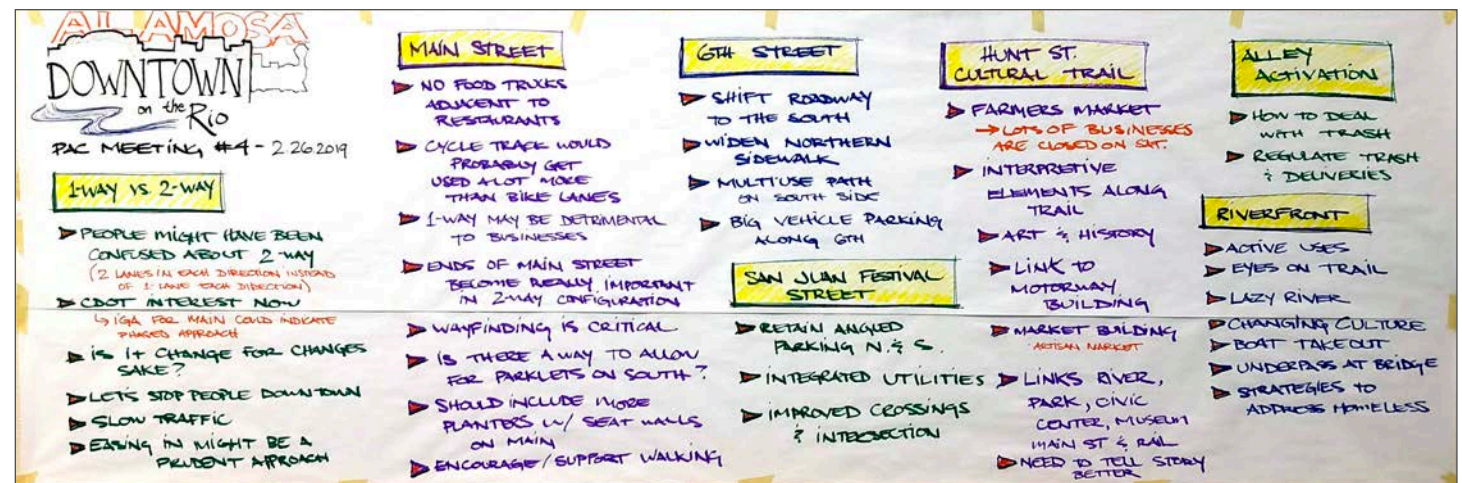 ALAMOSA
DOWNTOWN
on the
Rio
PAC MEETING #4 - 2.26.2019
1-WAY VS. 2-WAY
PEOPLE MIGHT HAVE BEEN
CONFUSED ABOUT 2-WAY
(2 LANES IN EACH DIRECTION INSTEAD
OF 1 LANE EACH DIRECTION)
CDOT INTEREST NOW
↳ IGA FOR MAIN COULD INDICATE
PHASED APPROACH
IS IT CHANGE FOR CHANGES
SAKE?
LET'S STOP PEOPLE DOWNTOWN
SLOW TRAFFIC
EASING IN MIGHT BE A
PRUDENT APPROACH
MAIN STREET
NO FOOD TRUCKS
ADJACENT TO
RESTAURANTS
CYCLE TRACK WOULD
PROBABLY GET
USED A LOT MORE
THAN BIKE LANES
1-WAY MAY BE DETRIMENTAL
TO BUSINESSES
ENDS OF MAIN STREET
BECOME REALLY IMPORTANT
IN 2-WAY CONFIGURATION
WAYFINDING IS CRITICAL
IS THERE A WAY TO ALLOW
FOR PARKLETS ON SOUTH?
SHOULD INCLUDE MORE
PLANTERS W/ SEAT WALLS
ON MAIN
ENCOURAGE/SUPPORT WALKING
6TH STREET
SHIFT ROADWAY
TO THE SOUTH
WIDEN NORTHERN
SIDEWALK
MULTIUSE PATH
ON SOUTH SIDE
BIG VEHICLE PARKING
ALONG 6TH
SAN JUAN FESTIVAL
STREET
RETAIN ANGLED
PARKING N. & S.
INTEGRATED UTILITIES
IMPROVED CROSSINGS
& INTERSECTION
HUNT ST.
CULTURAL TRAIL
FARMERS MARKET
→ LOTS OF BUSINESSES
ARE CLOSED ON SAT.
INTERPRETIVE
ELEMENTS ALONG
TRAIL
ART & HISTORY
LINK TO
MOTORWAY
BUILDING
MARKET BUILDING
ARTISAN MARKET
LINKS RIVER,
PARK, CIVIC
CENTER, MUSEUM
MAIN ST & RAIL
NEED TO TELL STORY
BETTER
ALLEY
ACTIVATION
HOW TO DEAL
WITH TRASH
REGULATE TRASH
& DELIVERIES
RIVERFRONT
ACTIVE USES
EYES ON TRAIL
LAZY RIVER
CHANGING CULTURE
BOAT TAKEOUT
UNDERPASS AT BRIDGE
STRATEGIES TO
ADDRESS HOMELESS